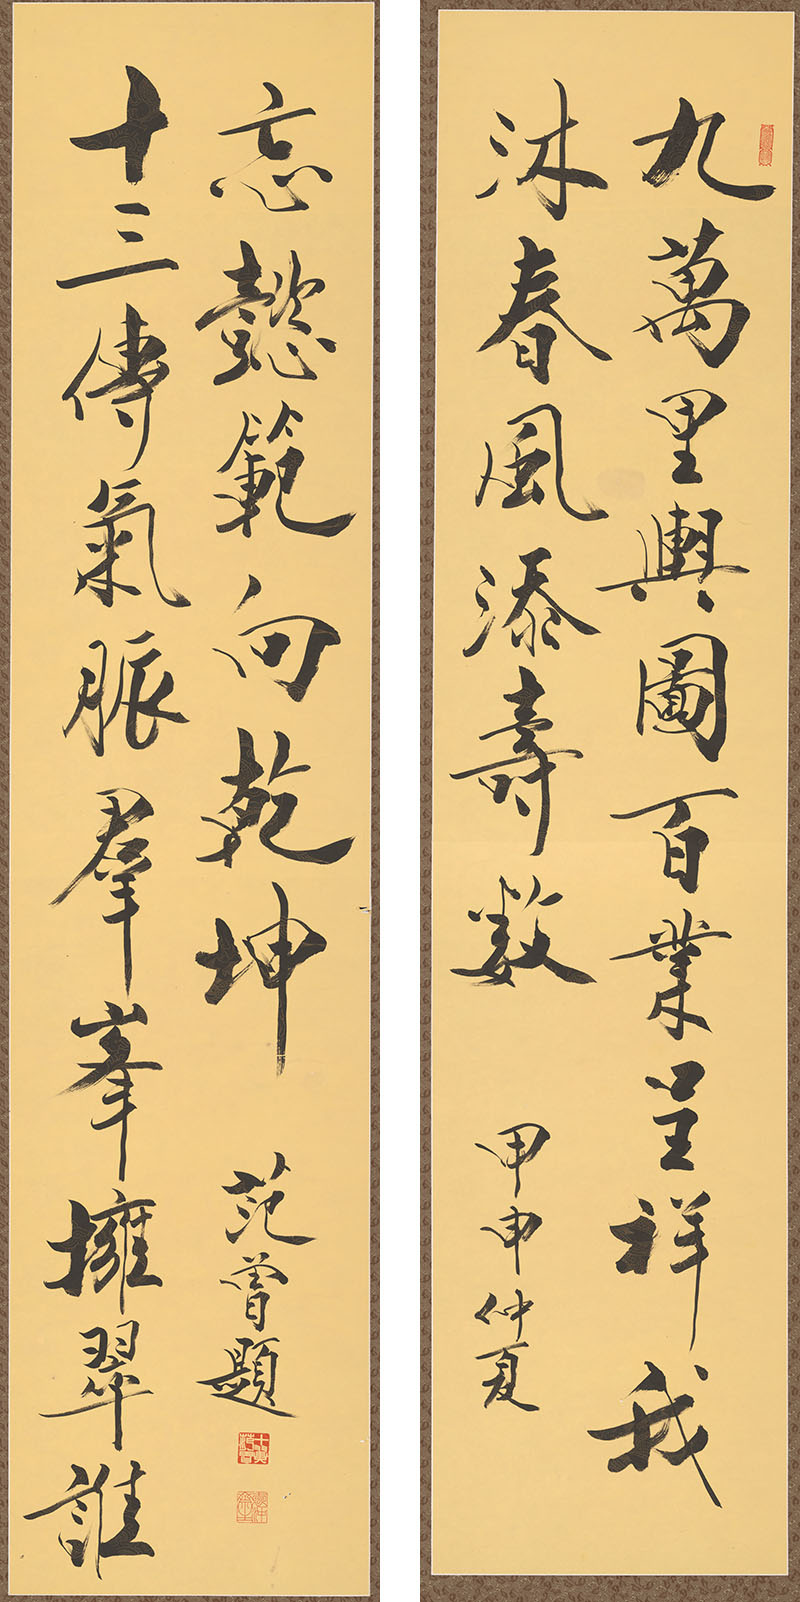 九萬里輿圖百業呈祥我
沐春風添壽数
甲申仲夏
十三傳氣脈羣峯擁翠誰
忘懿範向乾坤
范曾題